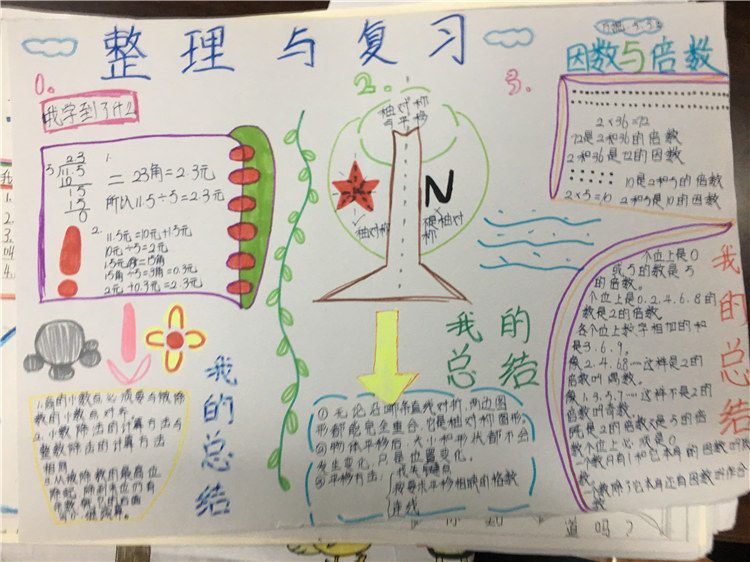 整理与复习
1.
我学到了什么
23
5
11.5
10
15
15
0
1.
二 23角=2.3元
所以11.5÷5=2.3元
2.
11.5元=10元+1.5元
10元÷5=2元
1.5元=15角
15角÷5=3角=0.3元
2元+0.3元=2.3元
我的总结
1.商的小数点必须要与被除
数的小数点对齐。
2.小数除法的计算方法与
整数除法的计算方法
相同
3.从被除数的最高位
除起,除到末位仍有
2.
轴对称
与平移
N
√
轴对称
×
不是轴对
称
我的总结
①无论沿哪条直线对折,两边图
形都能完全重合,它是轴对称图形。
②物体平移后,大小和形状都不会
发生变化,只是位置变化。
③平移方法:
找关键点
按要求平移相同的格数
连线
3.
因数与倍数
2×36=72
72是2和36的倍数
2和36是72的因数
10是2和5的倍数
2×5=10 2和5是10的因数
我的总结
个位上是0
或5的数是5
的倍数。
个位上是0.2.4.6.8的
数是2的倍数。
各个位上数字相加的和
是3.6.9。
像2.4.68…这样是2的
倍数叫偶数。
像1.3.5.7…这样不是2的
倍数叫奇数。
既是2的倍数又是5的倍
数个位上必须是0
一个数只有1和它本身的因数叫质
数
道吗?